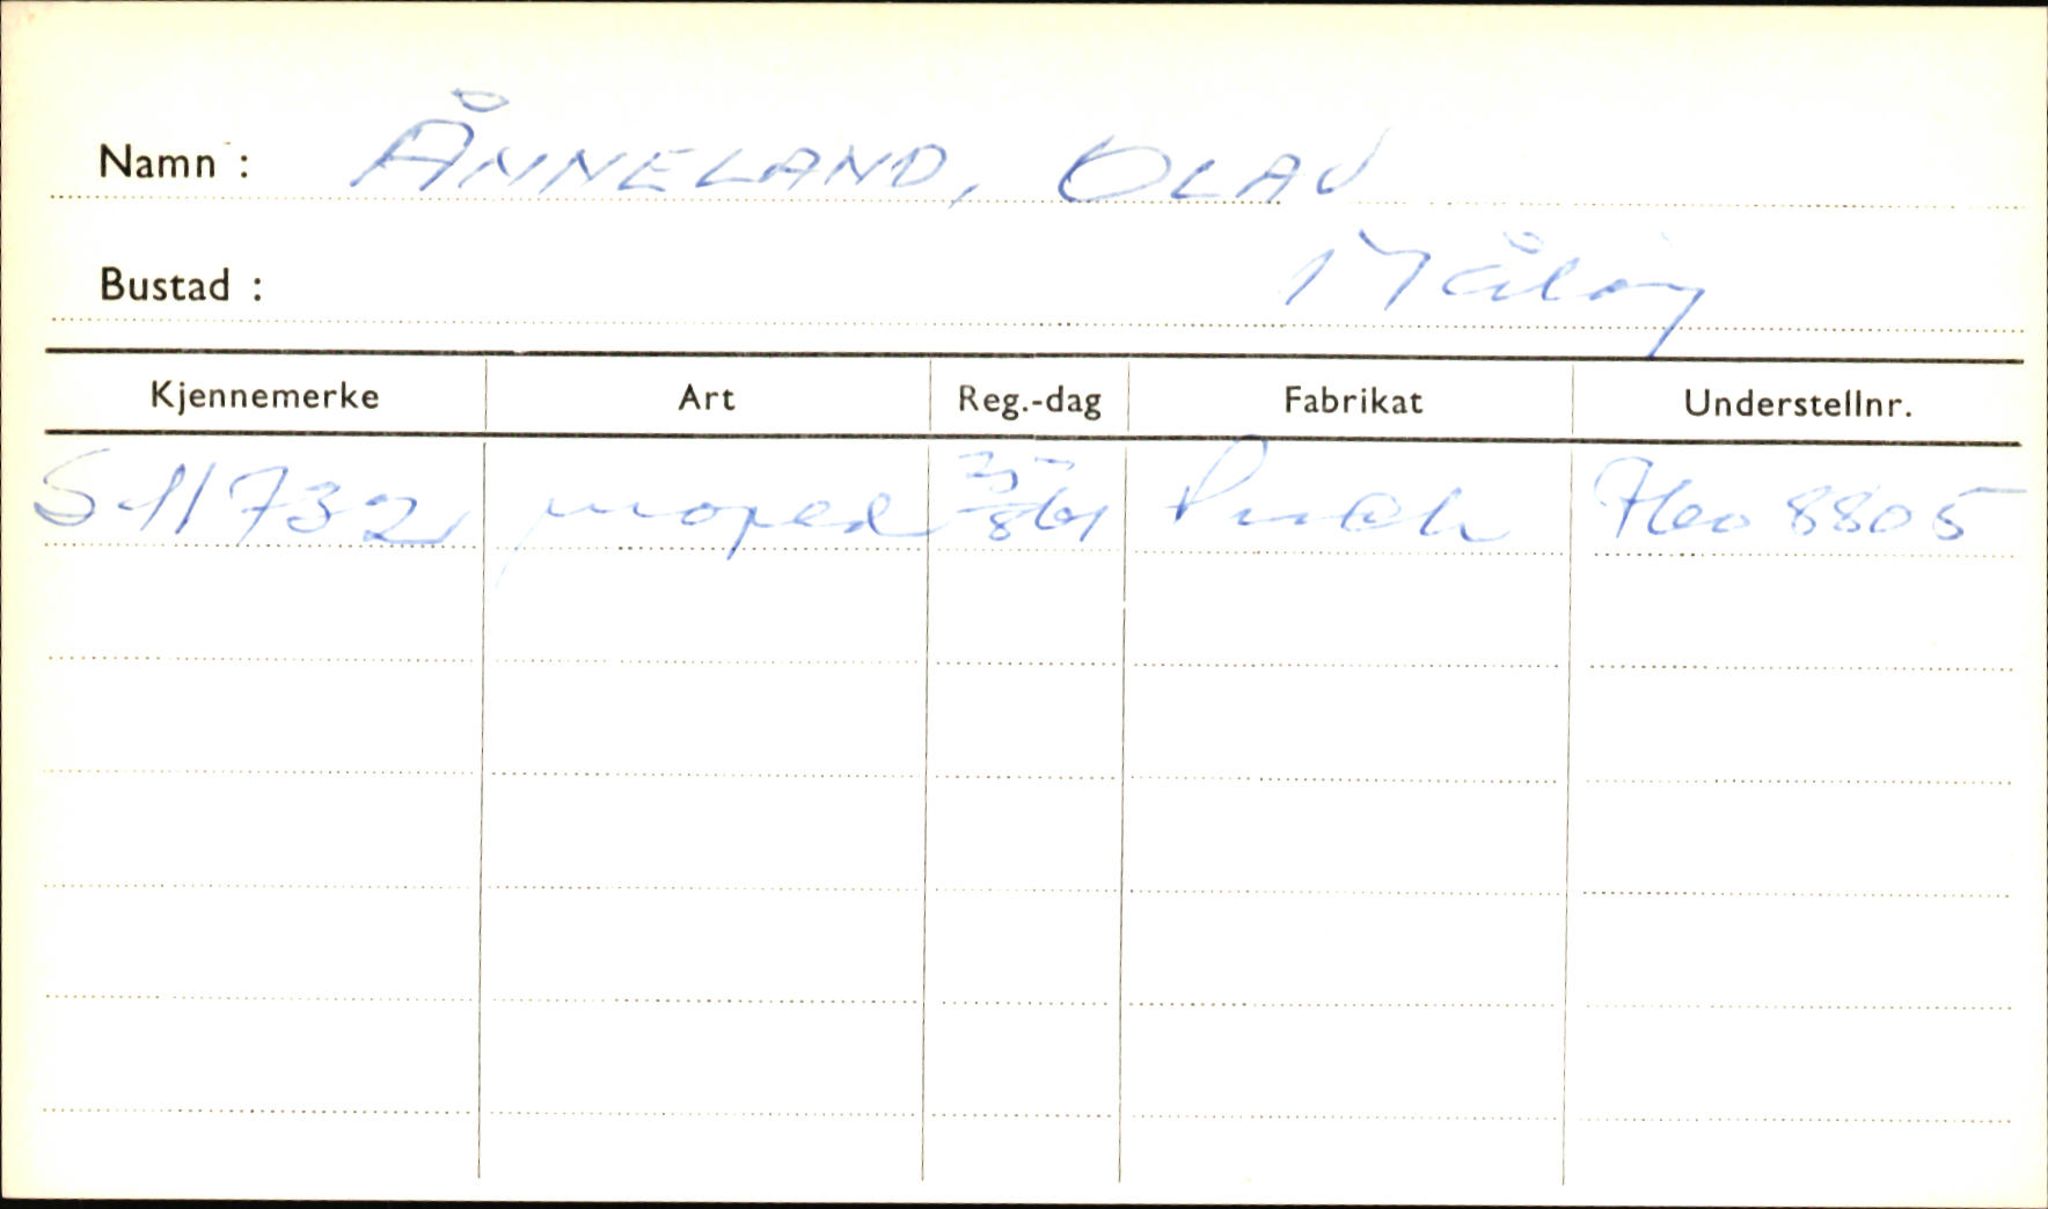 Namn : ÅNNELAND, OLAV
Bustad : Måløy
Kjennemerke Art Reg.-dag Fabrikat Understellnr.
S-11732 moped Puch 8805